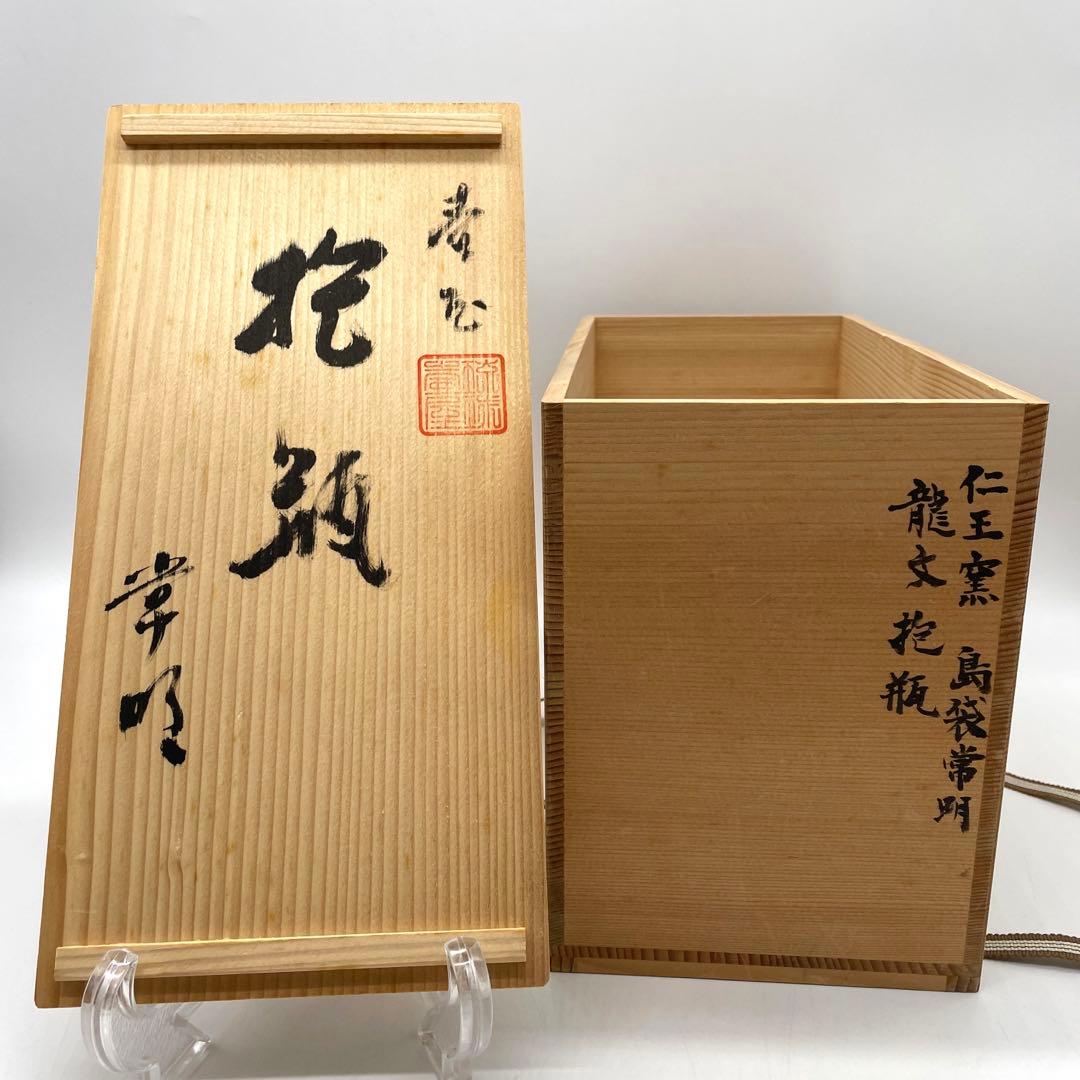 抱瓶
常明
仁王窯 島袋常明
龍文抱瓶